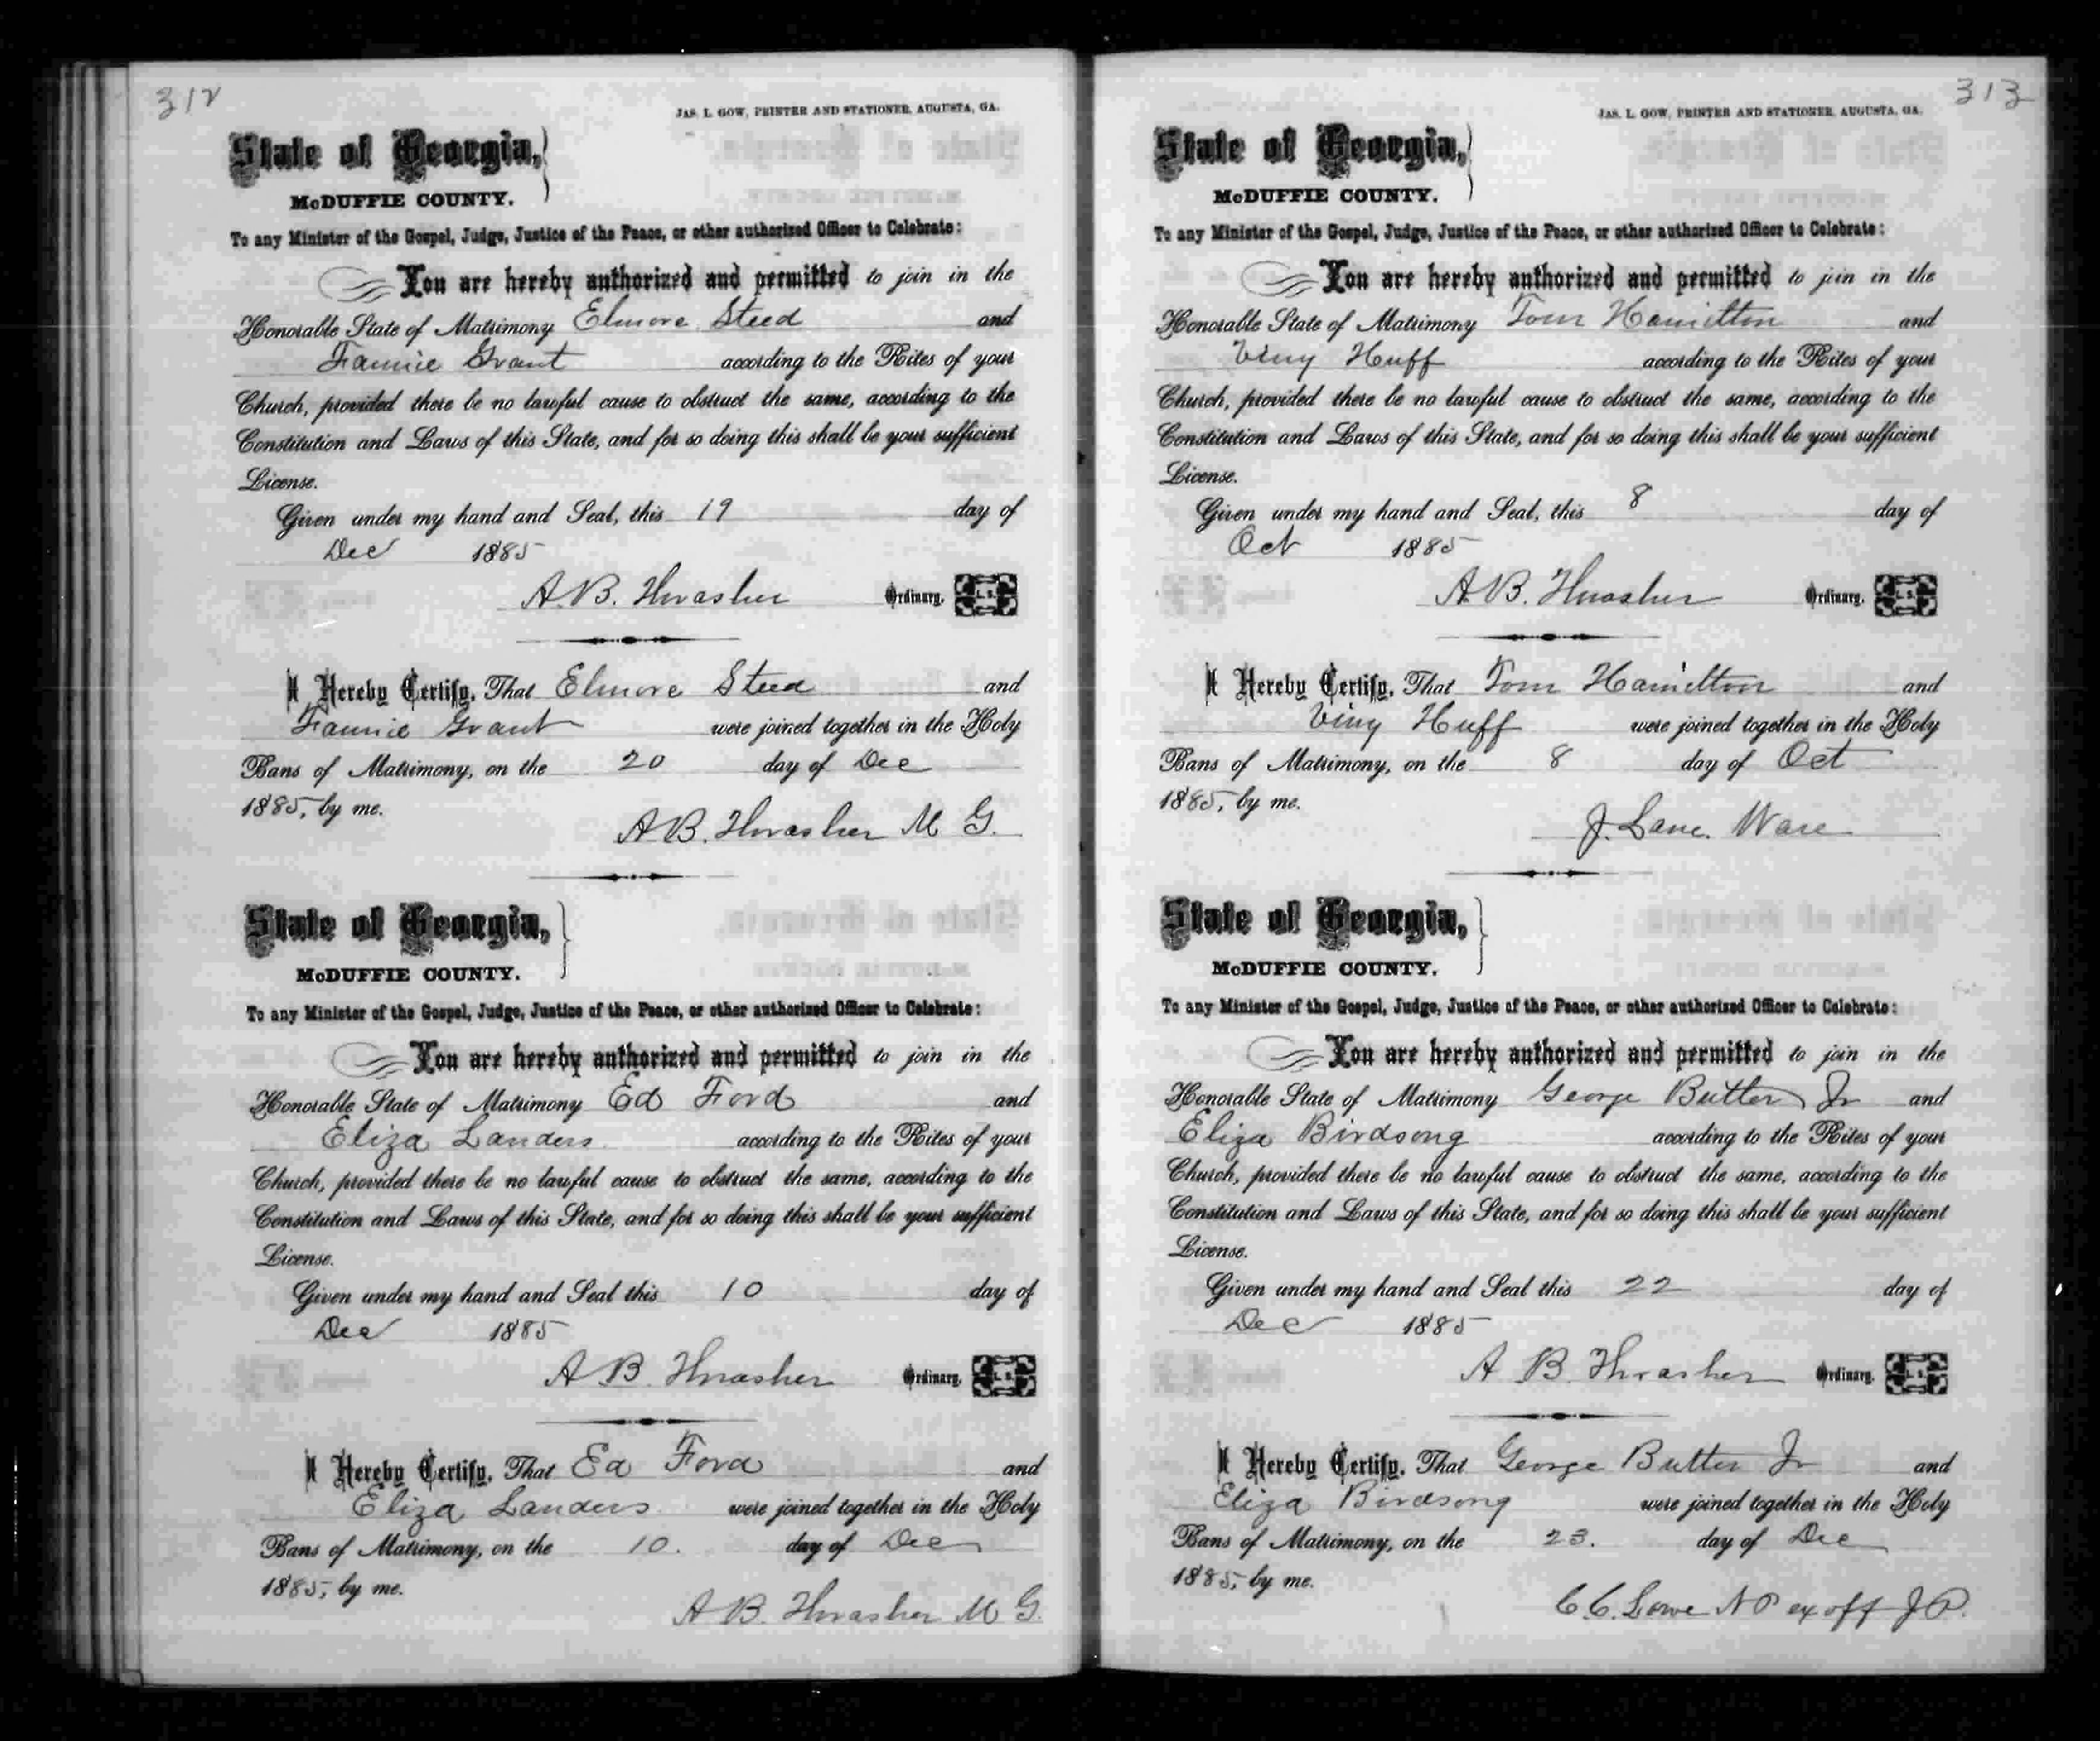 312
JAS. L. GOW, PRINTER AND STATIONER, AUGUSTA, GA.
State of Georgia,
McDUFFIE COUNTY.
To any Minister of the Gospel, Judge, Justice of the Peace, or other authorized Officer to Celebrate:
You are hereby authorized and permitted to join in the
Honorable State of Matrimony Elmore Steed and
Fannie Grant according to the Rites of your
Church, provided there be no lawful cause to obstruct the same, according to the
Constitution and Laws of this State, and for so doing this shall be your sufficient
License.
Given under my hand and Seal, this 19 day of
Dec 1885
A.B. Thrasher Ordinary. L. S.
I Hereby Certify, That Elmore Steed and
Fannie Grant were joined together in the Holy
Bans of Matrimony, on the 20 day of Dec
1885, by me.
A B. Thrasher M G.
State of Georgia,
McDUFFIE COUNTY.
To any Minister of the Gospel, Judge, Justice of the Peace, or other authorized Officer to Celebrate:
You are hereby authorized and permitted to join in the
Honorable State of Matrimony Ed Ford and
Eliza Landers according to the Rites of your
Church, provided there be no lawful cause to obstruct the same, according to the
Constitution and Laws of this State, and for so doing this shall be your sufficient
License.
Given under my hand and Seal this 10 day of
Dec 1885
A B. Thrasher Ordinary. L. S.
I Hereby Certify, That Ed Ford and
Eliza Landers were joined together in the Holy
Bans of Matrimony, on the 10. day of Dec
1885, by me.
A B. Thrasher M G.
313
JAS. L. GOW, PRINTER AND STATIONER, AUGUSTA, GA.
State of Georgia,
McDUFFIE COUNTY.
To any Minister of the Gospel, Judge, Justice of the Peace, or other authorized Officer to Celebrate:
You are hereby authorized and permitted to join in the
Honorable State of Matrimony Tom Hamilton and
Viny Huff according to the Rites of your
Church, provided there be no lawful cause to obstruct the same, according to the
Constitution and Laws of this State, and for so doing this shall be your sufficient
License.
Given under my hand and Seal, this 8 day of
Oct 1885
A.B. Thrasher Ordinary. L. S.
I Hereby Certify, That Tom Hamilton and
Viny Huff were joined together in the Holy
Bans of Matrimony, on the 8 day of Oct
1885, by me.
J. Lane. Ware
State of Georgia,
McDUFFIE COUNTY.
To any Minister of the Gospel, Judge, Justice of the Peace, or other authorized Officer to Celebrate:
You are hereby authorized and permitted to join in the
Honorable State of Matrimony George Butler Jr and
Eliza Birdsong according to the Rites of your
Church, provided there be no lawful cause to obstruct the same, according to the
Constitution and Laws of this State, and for so doing this shall be your sufficient
License.
Given under my hand and Seal this 22 day of
Dec 1885
A B. Thrasher Ordinary. L. S.
I Hereby Certify, That George Butler Jr and
Eliza Birdsong were joined together in the Holy
Bans of Matrimony, on the 23. day of Dec
1885, by me.
C.C. Lowe N P ex off J P.